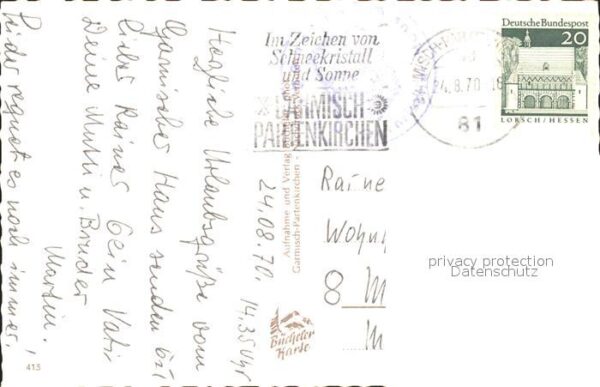 Herzliche Urlaubsgrüße vom
Garmischer Haus senden Dir
lieber Rainer Dein Vati
Deine Mutti u. Bruder
Martin.
Lider regnet es noch immer!
24.08.70. 14.35 Uhr
Im Zeichen von
Schneekristall
und Sonne
GARMISCH-
PARTENKIRCHEN
Deutsche Bundespost
20
LORSCH/HESSEN
.8.70
81
Aufnahme und Verlag
Garmisch-Partenkirchen
Raine
Wohn
8 M
M
Bücheler
Karte
413
privacy protection
Datenschutz